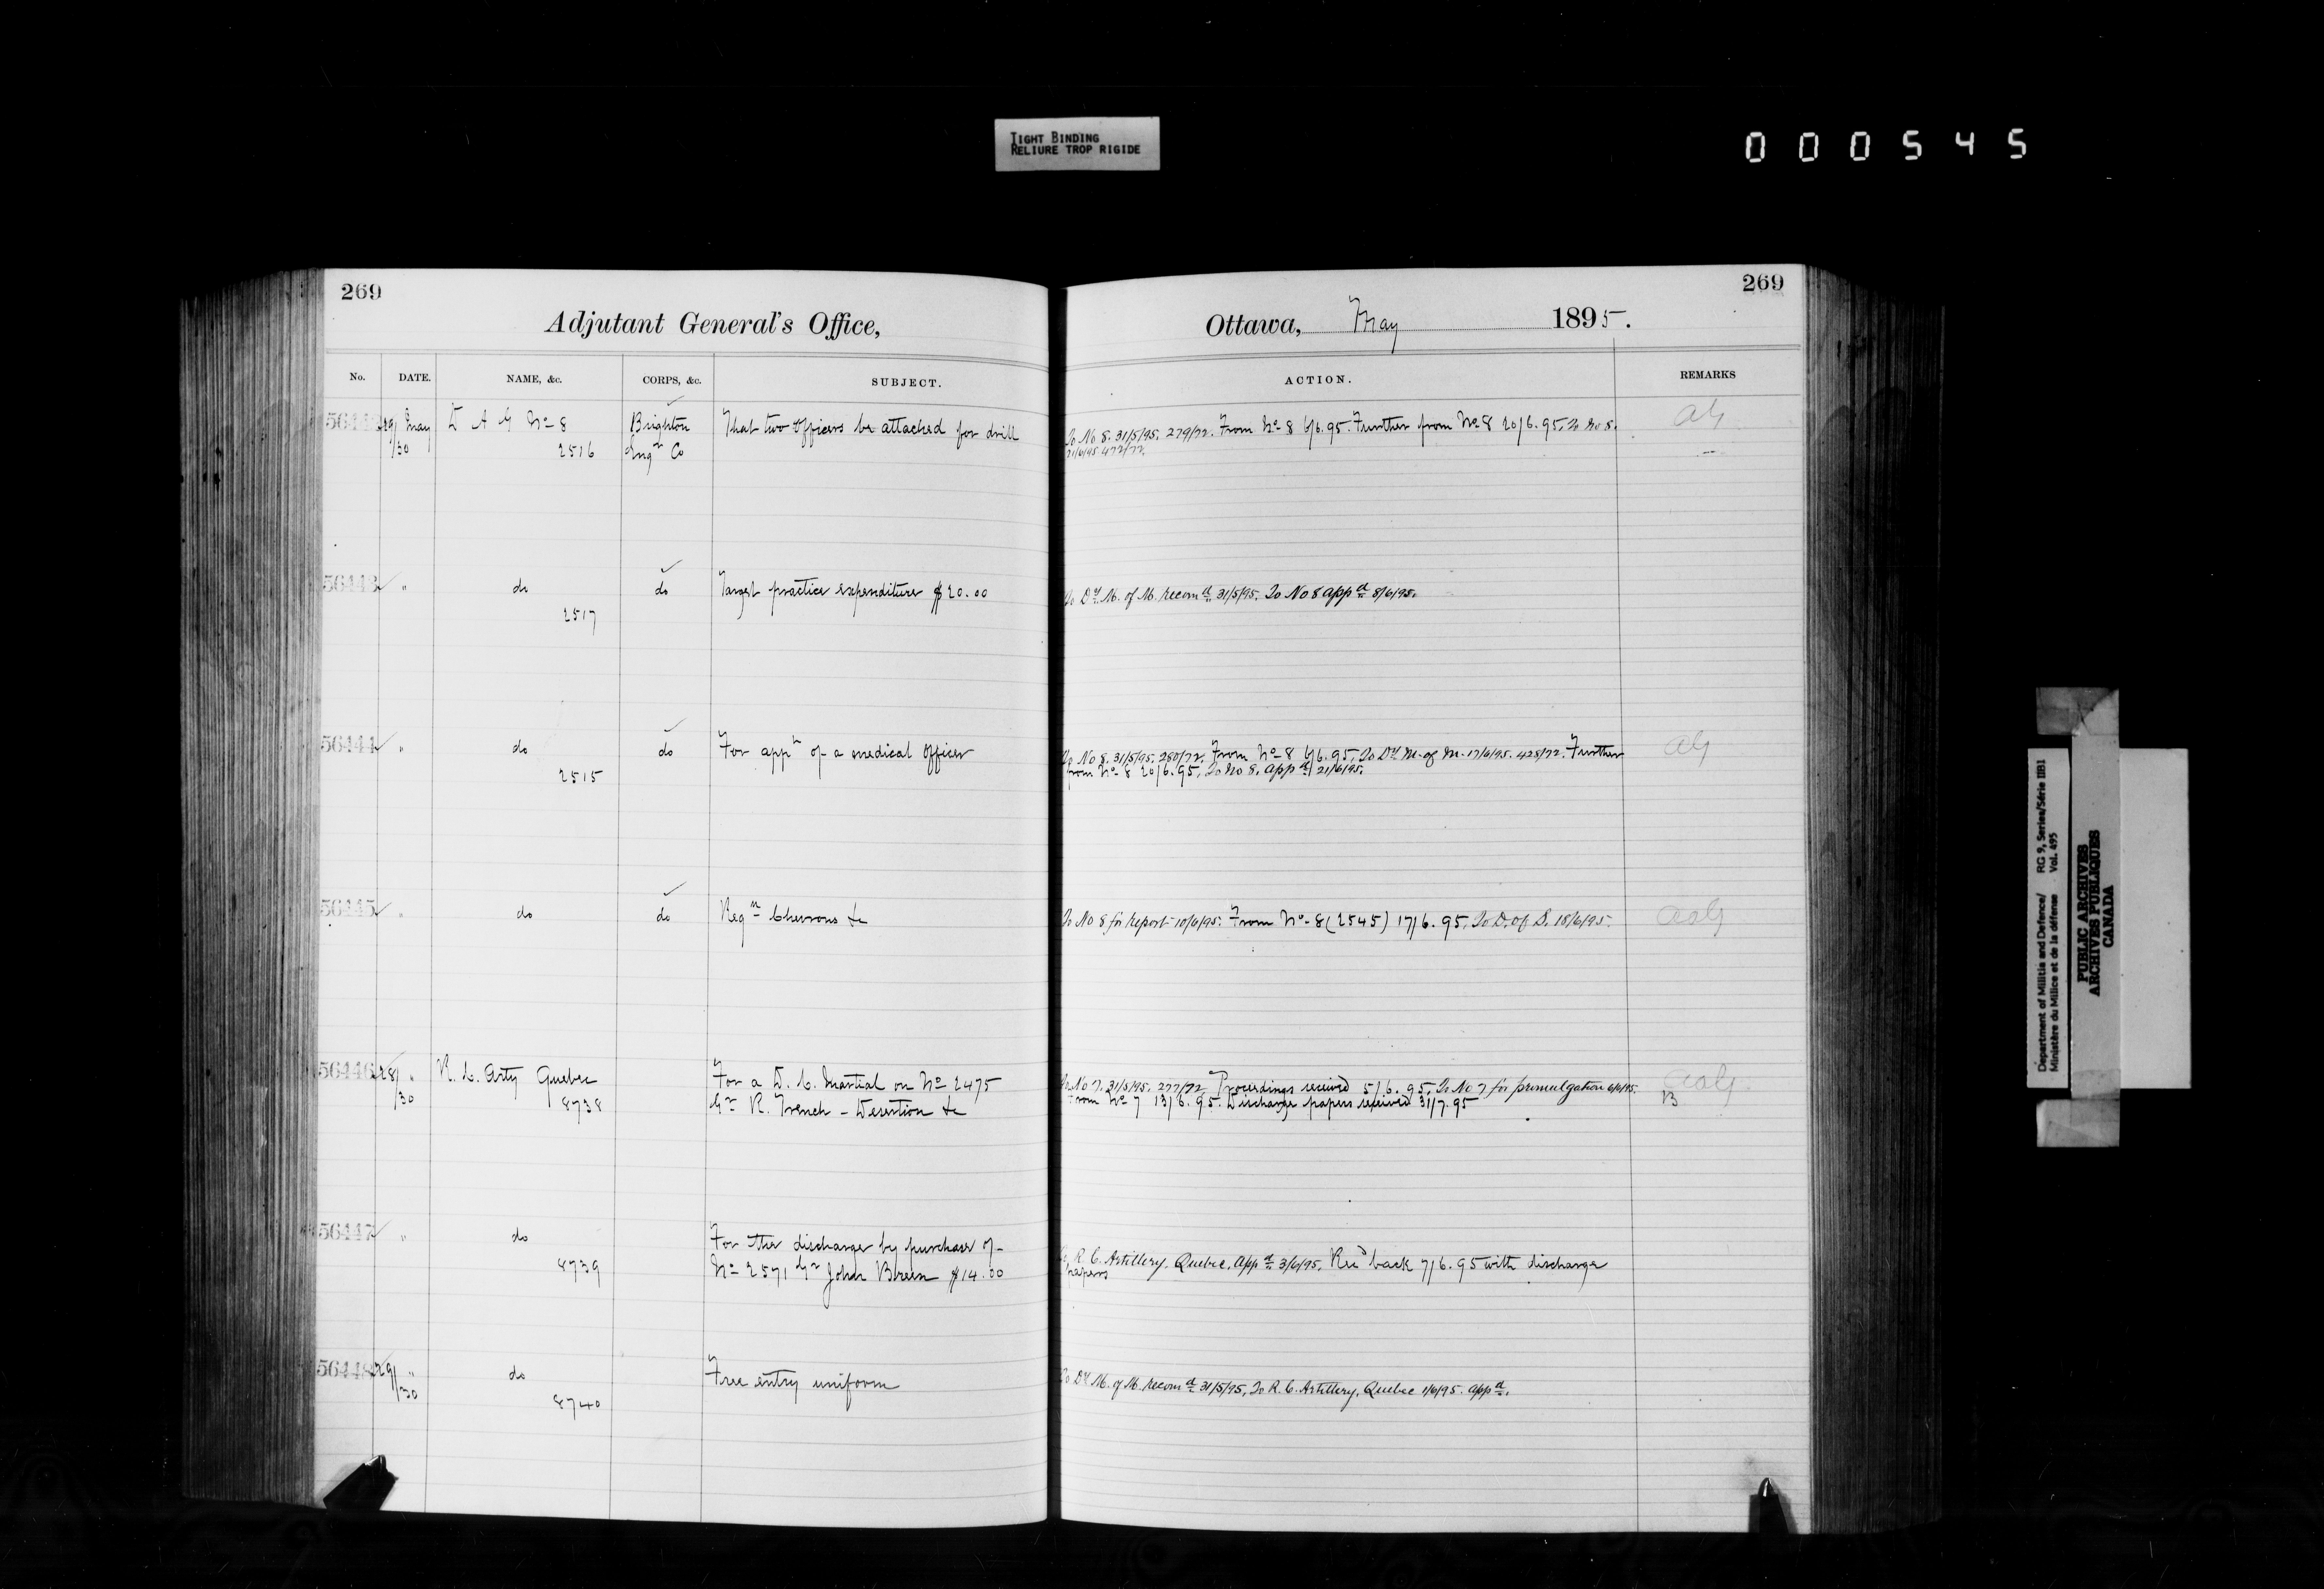 TIGHT BINDING
RELIURE TROP RIGIDE
000545
269
Adjutant General's Office,
No. DATE. NAME, &c. CORPS, &c. SUBJECT.
56442 29/ May D A G No 8 Brighton That two officers be attached for drill
/30 2516 Engr Co
56443 " do do Target practice expenditure $20.00
2517
56444 " do do For appt of a medical officer
2515
56445 " do do Reqn Chevrons &c
56446 28/ " R. C. Arty Quebec For a D. C. Martial on No 2475
/30 8738 Gr R. French - Desertion &c
56447 " do For the discharge by purchase of
8739 No 2571 Gr John Breen $14.00
56448 29/ " do Free entry uniform
/30 8740
269
Ottawa, May 1895.
ACTION. REMARKS
To No 8. 31/5/95. 279/72. From No 8 6/6.95. Further from No 8 20/6.95. To No 8. AG
21/6/95. 472/72.
To Dy. M. of M. recomd 31/5/95. To No 8 appd 8/6/95.
To No 8. 31/5/95. 280/72. From No 8 6/6.95. To Dy M. of M. 17/6/95. 428/72. Further AG
from No 8 20/6.95. To No 8. appd 21/6/95.
To No 8 for report 10/6/95. From No 8 (2545) 17/6.95. To D. of S. 18/6/95. AAG
To No 7. 31/5/95. 277/72 Proceedings received 5/6.95. To No 7 for promulgation 6/6/95. AAG
From No 7 13/6.95. Discharge papers received 31/7.95 B
To R. C. Artillery, Quebec, appd 3/6/95. Recd back 7/6.95 with discharge
papers
To Dy M. of M. recomd 31/5/95. To R. C. Artillery, Quebec 1/6/95. appd.
Department of Militia and Defence/ RG 9, Series/Série IIB1
Ministère du Milice et de la défense Vol. 495
PUBLIC ARCHIVES
ARCHIVES PUBLIQUES
CANADA